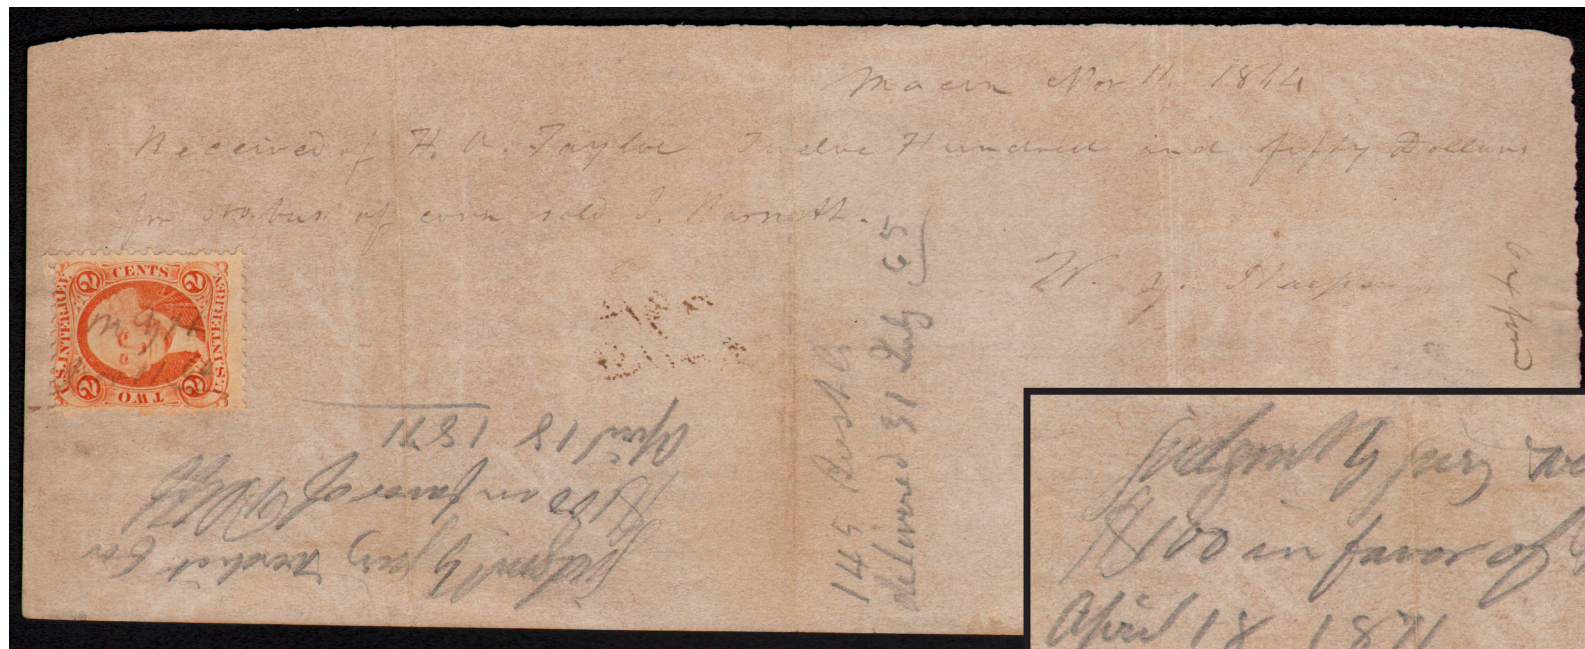 Macon Nov 11. 1864
Received of H. A. Tayloe Twelve Hundred and fifty Dollars
for 500 bus of corn sold J. Barnett.
W. Y. Harper
2 CENTS 2
U.S. INTER. REV.
U.S. INTER. REV.
2 TWO 2
145 Bush
delivered 31 July 65
Judgmt by jury verdict for
$100 in favor of
April 18 1871
Judgmt by jury
$100 in favor of
April 18 1871